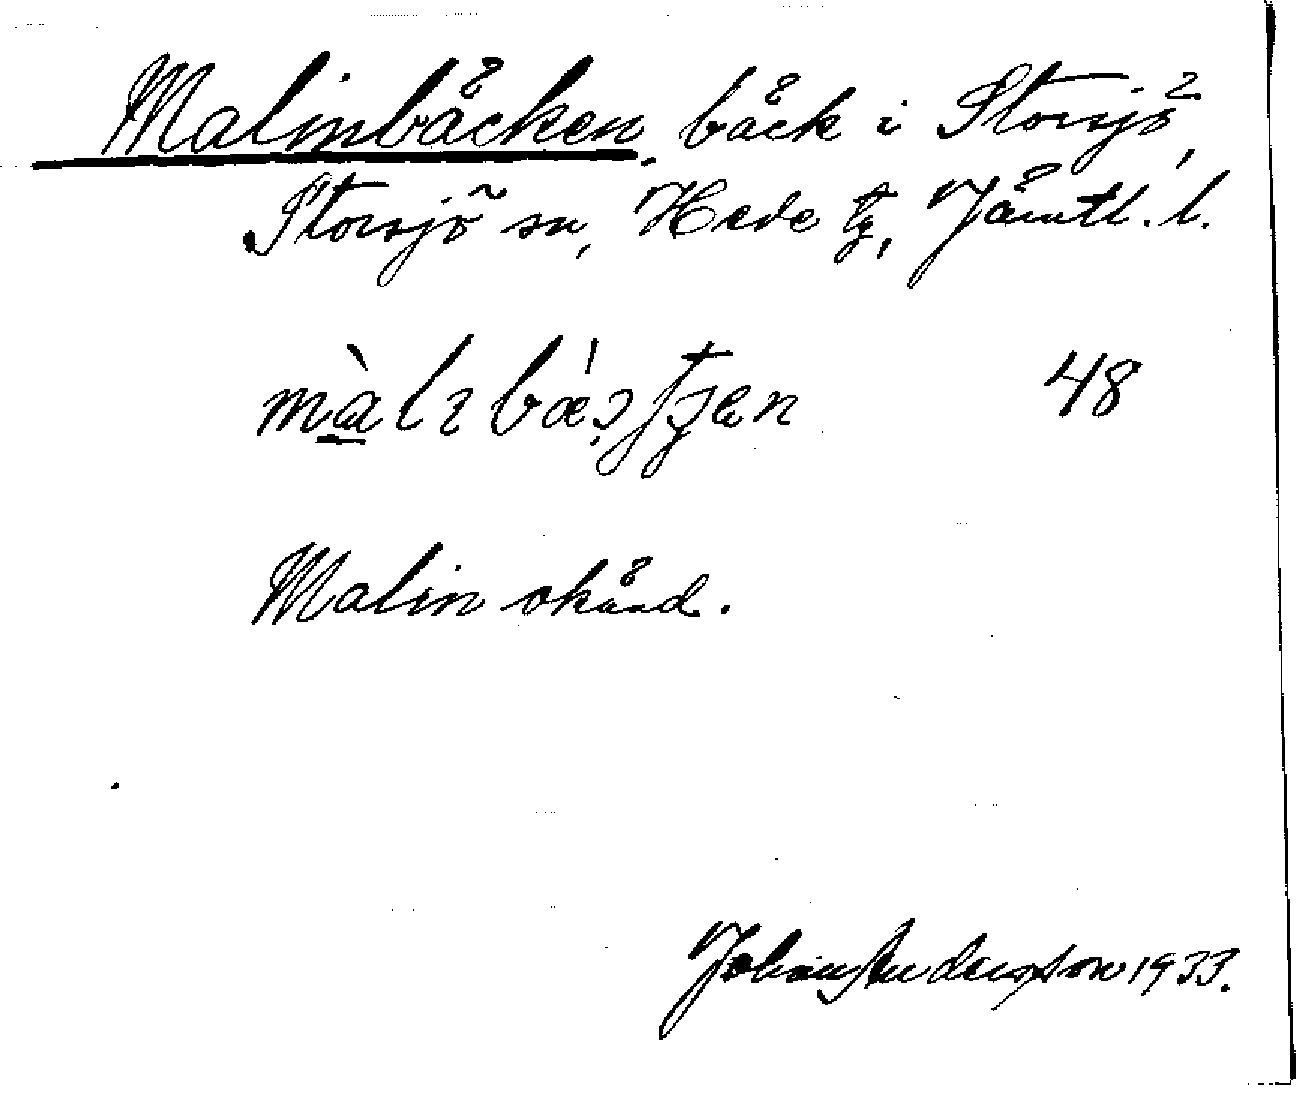 Malmbäcken, bäck i Storsjö,
Storsjö sn, Hede tg, Jämtl. l.
48
Malin okänd.
Johan Anderson 1933.